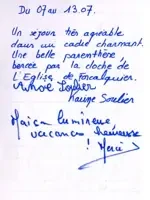 Du 07 au 13.07.
Un séjour très agréable
dans un cadre charmant.
Une belle parenthèse,
bercée par la cloche de
L'Eglise de Forcalquier.
Karine Soulier
Maison lumineuse
vacances heureuse
! Merci